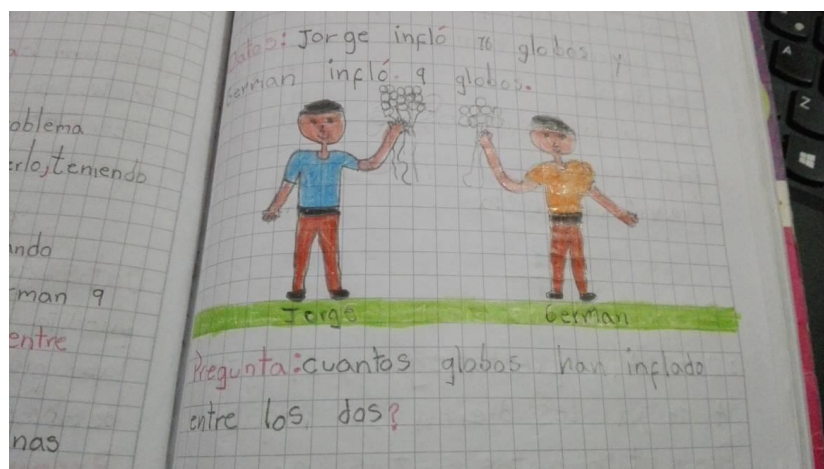 oblema
erlo, teniendo
ndo
man 9
entre
nas
Datos: Jorge infló 16 globos y
German infló 9 globos.
Jorge
German
Pregunta: cuantos globos han inflado
entre los dos?
A
Z